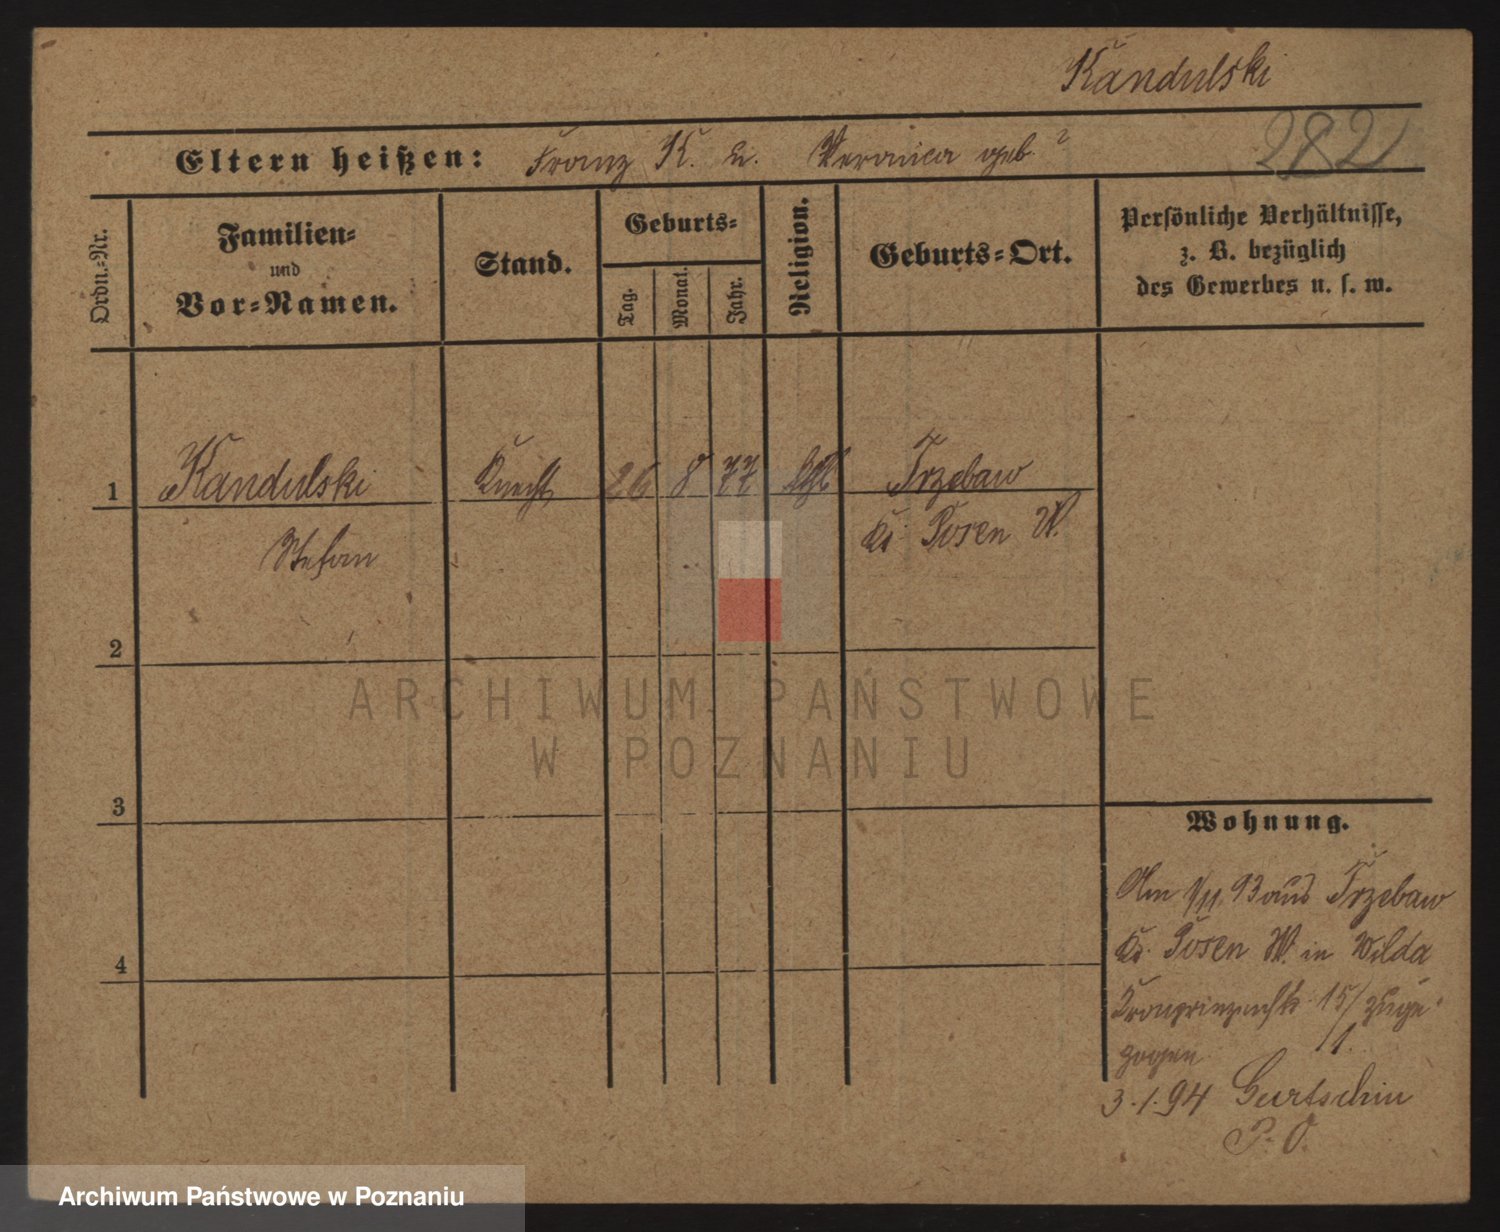 Kandulski
2821
Eltern heißen: Franz K. u. Veronica geb. ?
Ordn.-Nr.
Familien-
und
Vor-Namen.
Stand.
Geburts-
Tag.
Monat.
Jahr.
Religion.
Geburts-Ort.
Persönliche Verhältnisse,
z. B. bezüglich
des Gewerbes u. s. w.
1 Kandulski Knecht 26 8 77 kth Trzebaw
Stefan Kr. Posen W.
2
3
4
Wohnung.
Am 1/11 93 aus Trzebaw
Kr. Posen W. in Wilda
Kronprinzenstr. 15/1 zuge-
zogen
3.1.94 Gurtschin
P. O.
ARCHIWUM PAŃSTWOWE
W POZNANIU
Archiwum Państwowe w Poznaniu